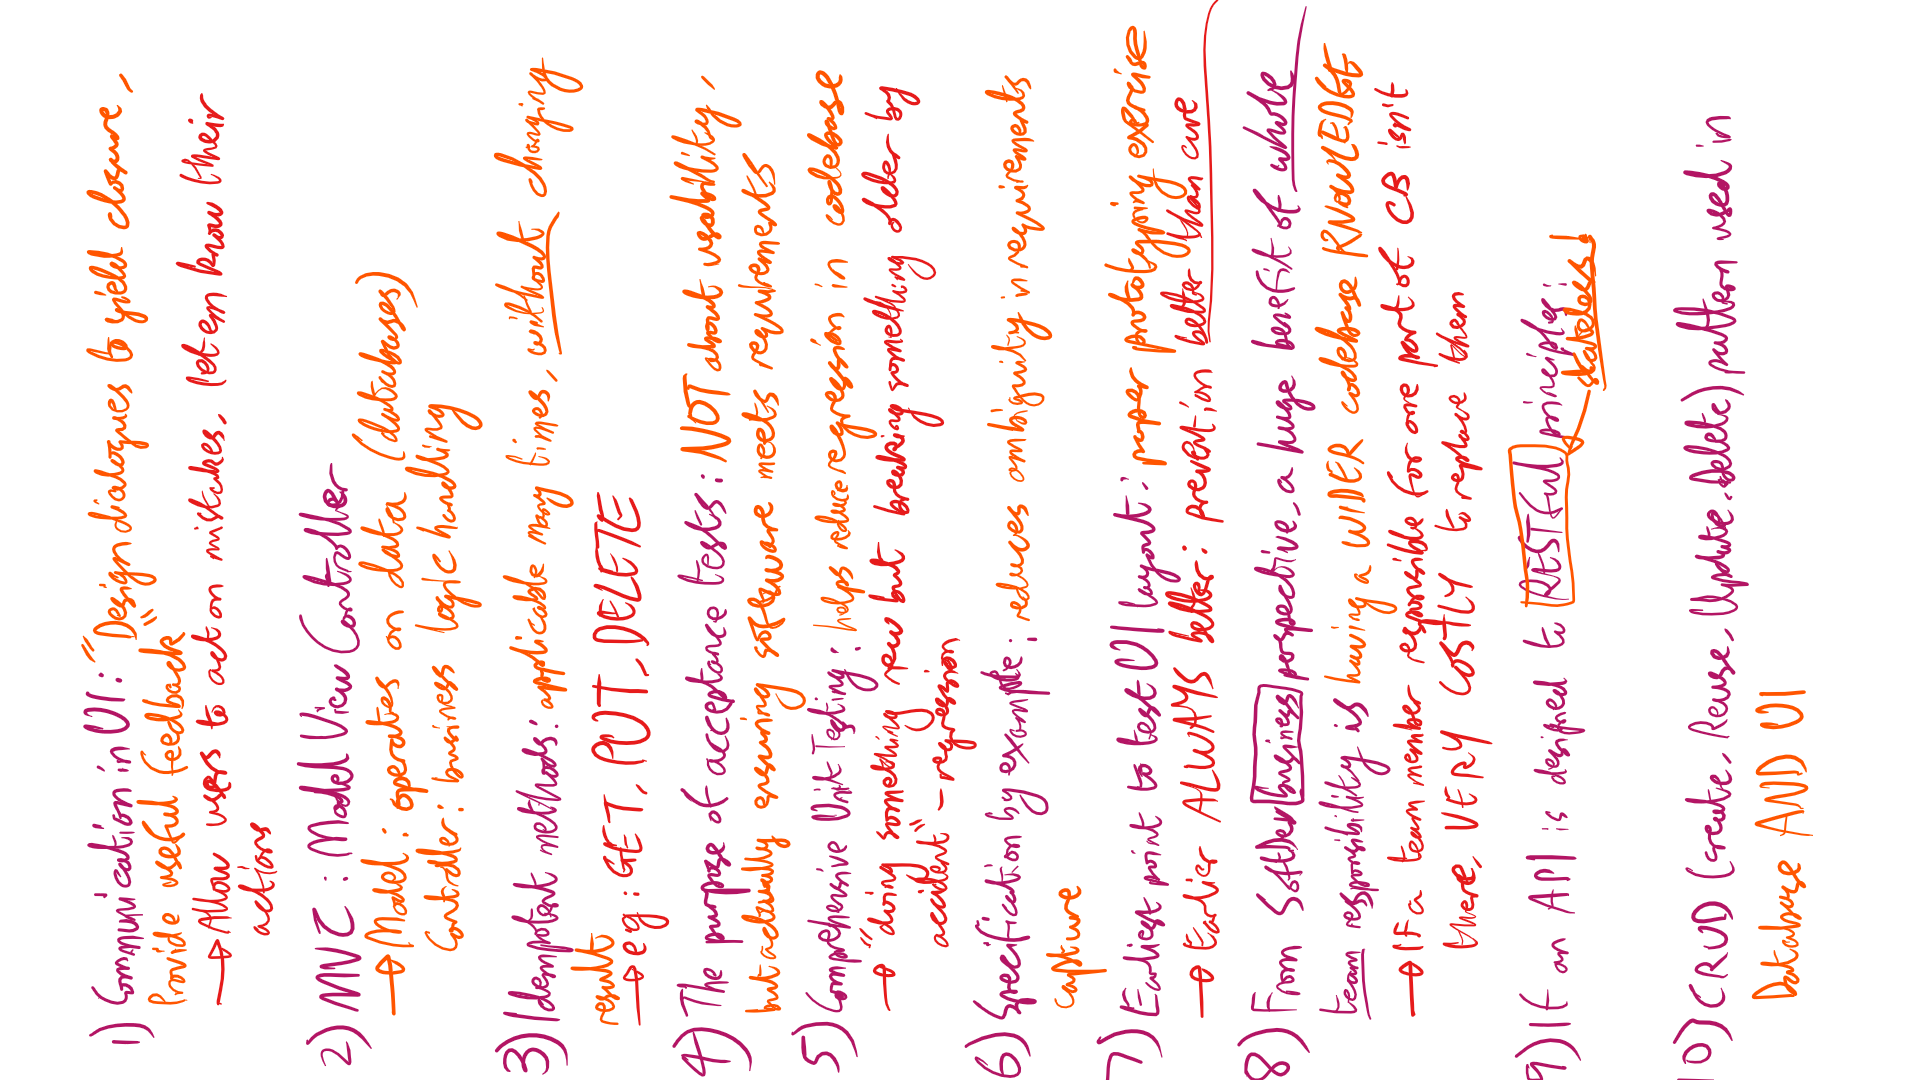 1) Communication in UI: "Design dialogues to yield closure,
Provide useful feedback"
→ Allow users to act on mistakes, let em know their
actions
2) MVC : Model View Controller
→ Model: operates on data (databases)
Controller: business logic handling
3) Idempotent methods: applicable many times, without changing
result
→ eg: GET, PUT, DELETE
4) The purpose of acceptance tests: NOT about usability,
but actually ensuring software meets requirements
5) Comprehensive Unit Testing: helps reduce regression in codebase
→ "doing something new but breaking something older by
accident" - regression
6) Specification by example: reduces ambiguity in requirements
capture
7) Earliest point to test UI layout: paper prototyping exercise
→ Earlier ALWAYS better: prevention better than cure
8) From SoftDev business perspective, a huge benefit of whole
team responsibility is having a WIDER codebase KNOWLEDGE
→ If a team member responsible for one part of CB isn't
there, VERY COSTLY to replace them
9) If an API is designed to RESTful principles:
stateless!
10) CRUD (Create, Reuse, Update, Delete) pattern used in
Database AND UI